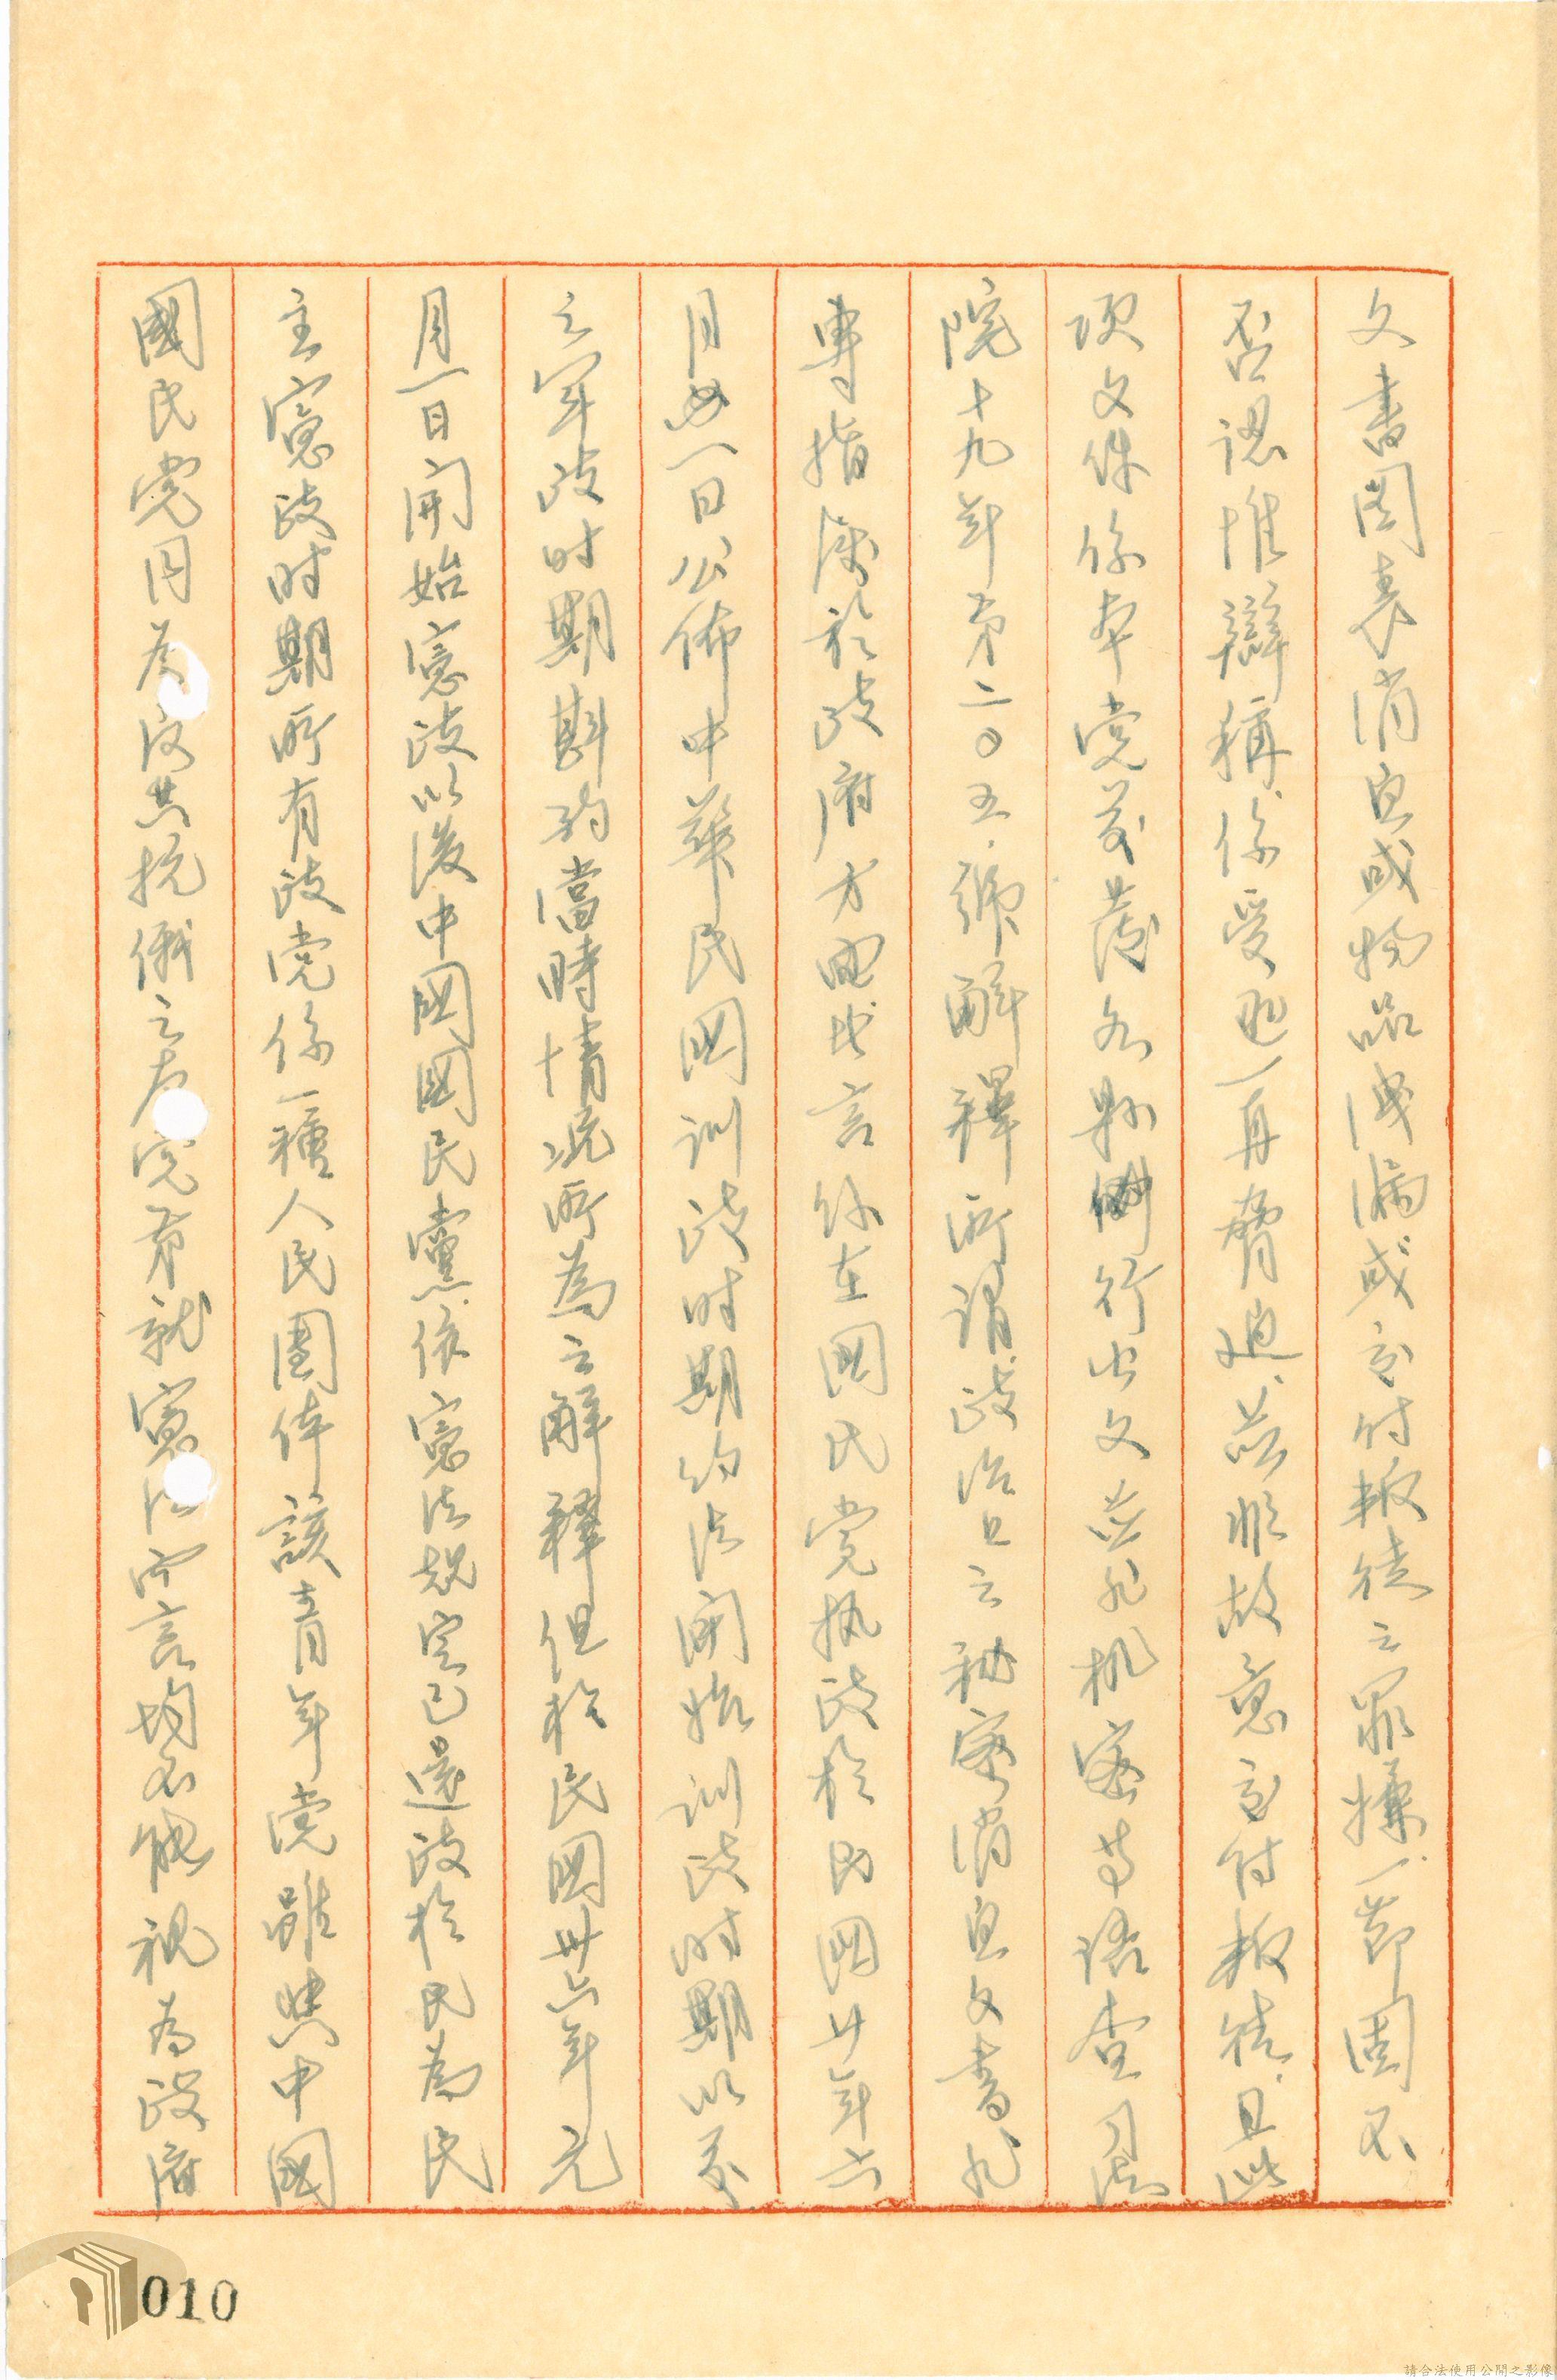 文書図表消息或物品洩漏或交付叛徒之罪嫌一節固不
否認惟辯稱係受逼一再脅迫並非故意交付叛徒且此
項文件係本党發各縣行出文並非机密等語查司法
院十九年第二〇五號解釋所謂政治上之秘密消息文書凡
專指属於政府方面此言係在國民党执政於民國廿年六
月一日公佈中華民國訓政时期約法開始訓政时期以前
之军政时期斟酌當時情况所為之解釋但於民國卅六年元
月一日開始憲政以後中國國民黨依憲法規定已還政於民為民
主憲政时期所有政党係一種人民團体該青年党雖與中國
國民党同為反共抗俄之友党第就憲法而言均不能視為政府
010
請合法使用公開之影像